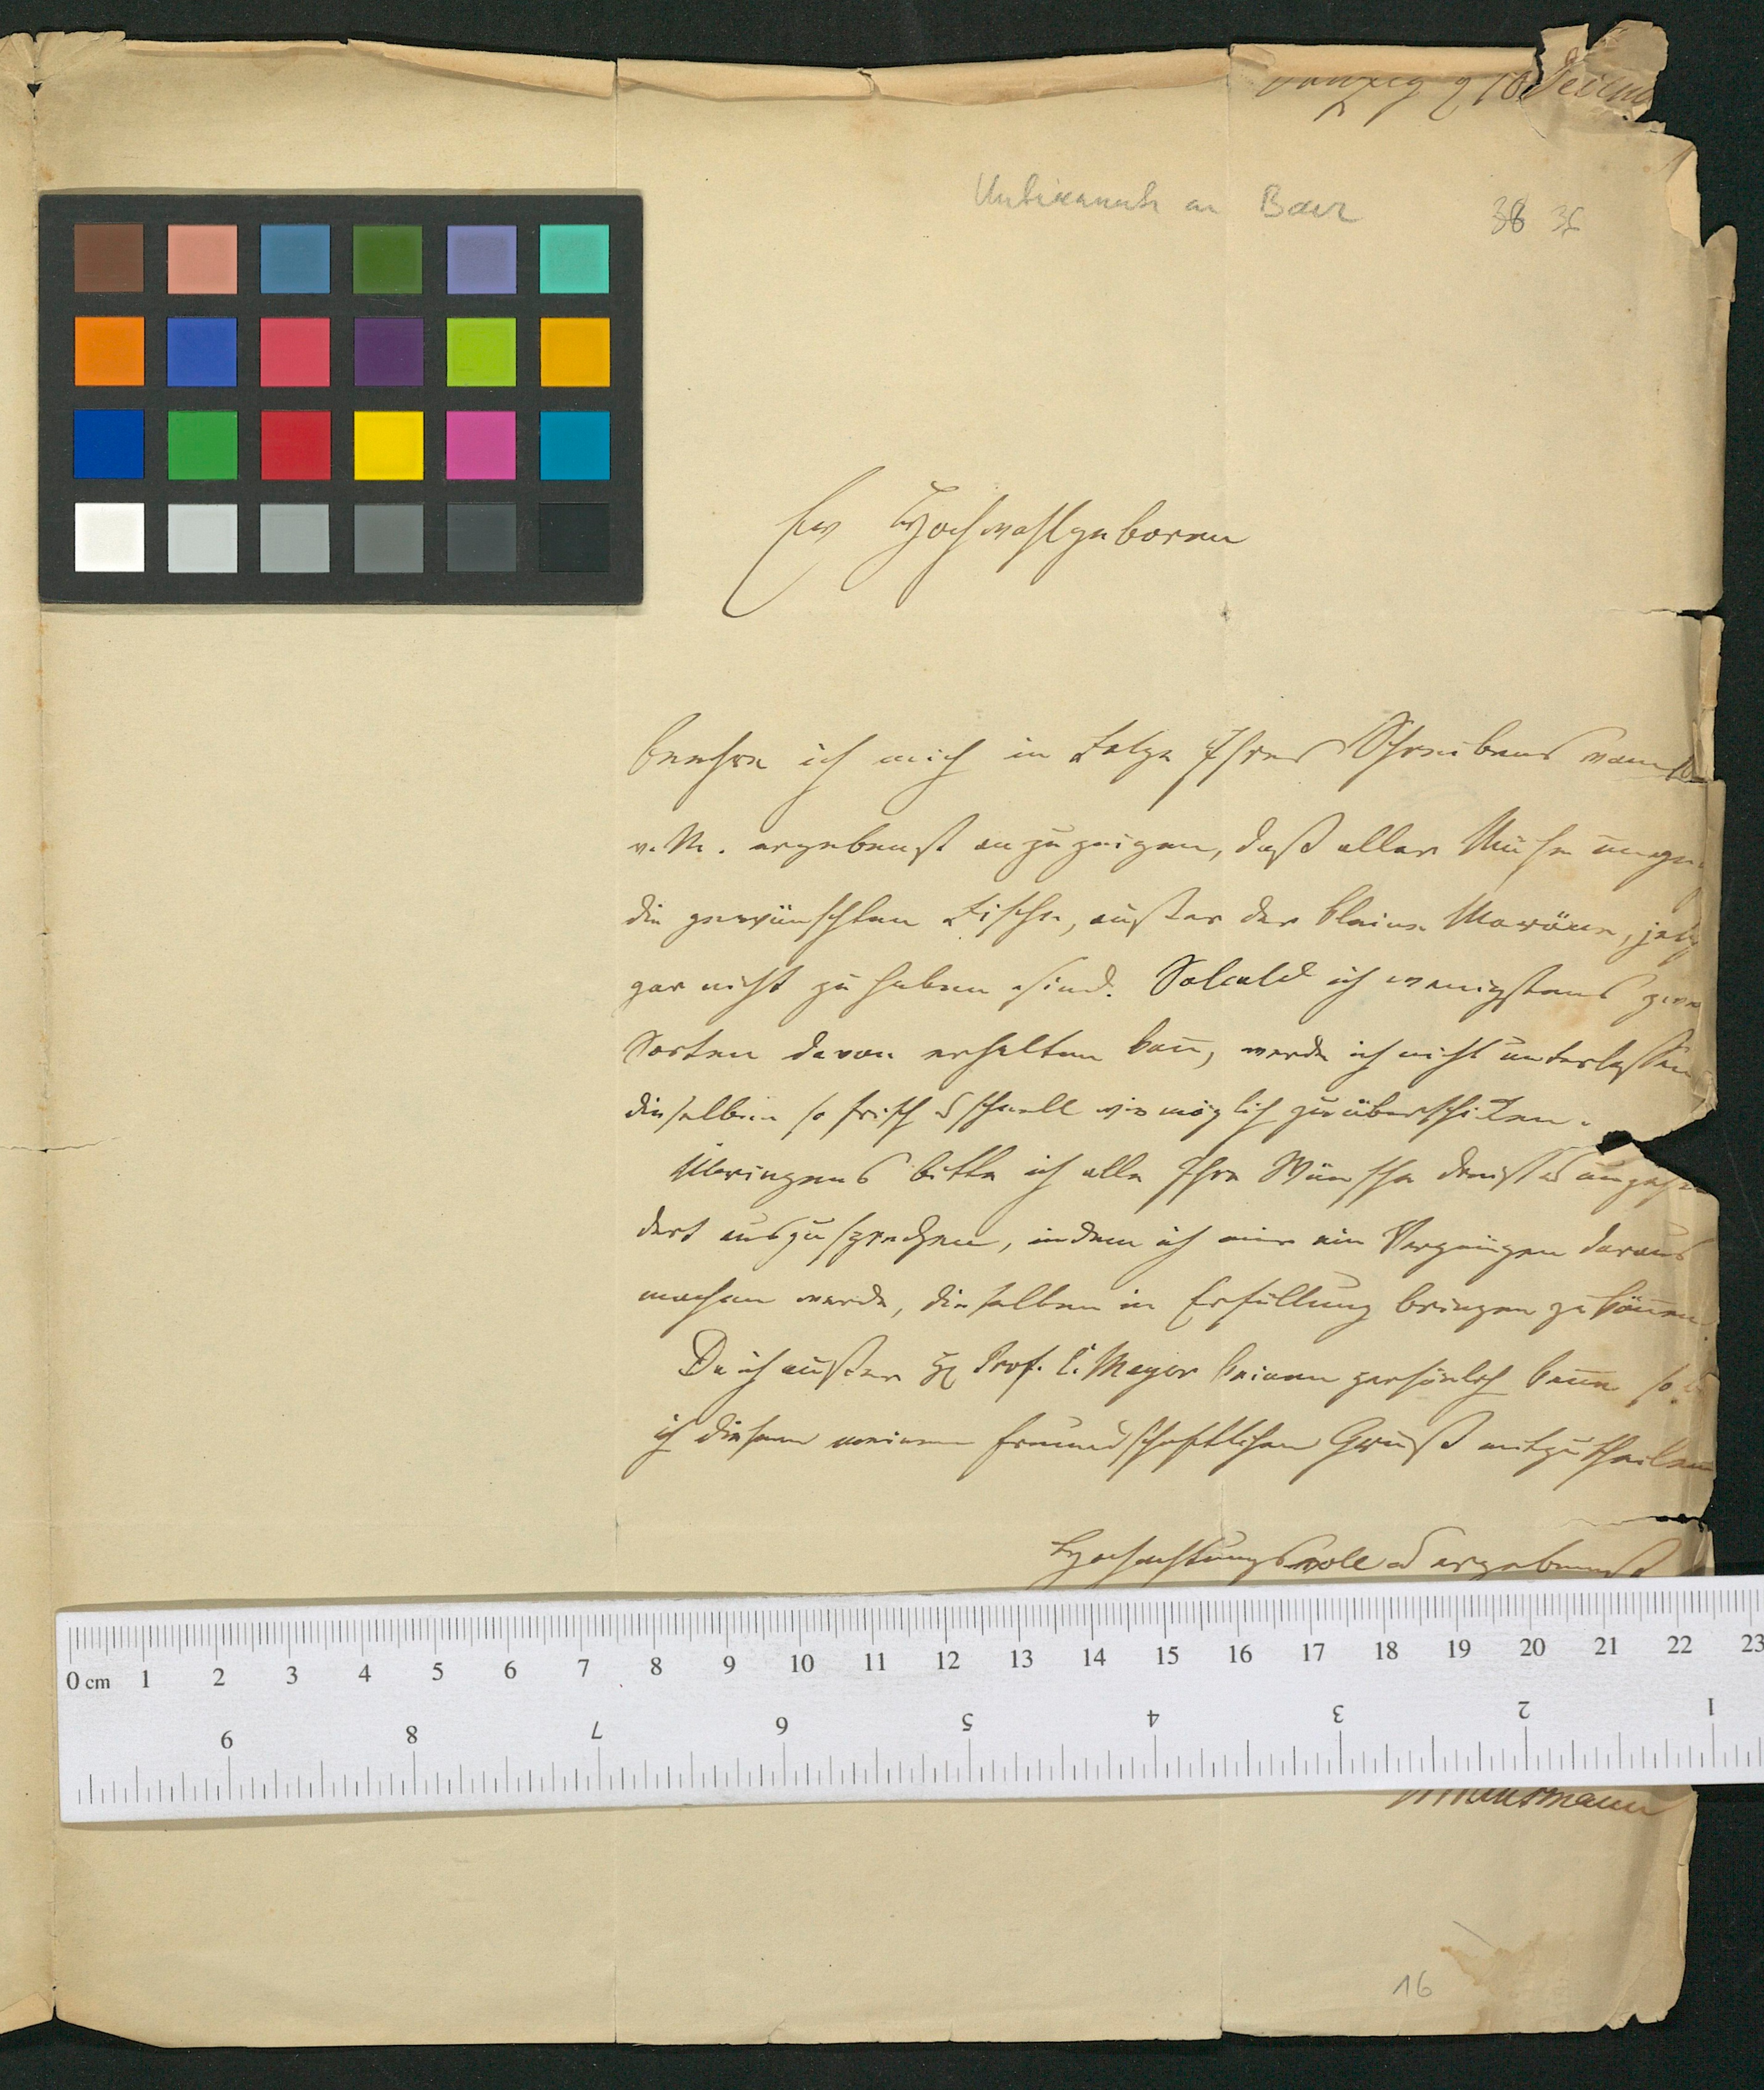 Danzig d 10 Decemb
Unbekannt an Baer 38 36
Ew Hochwohlgeboren
beehre ich mich in Folge Ihres Schreibens vom
v. M. ergebenst anzuzeigen, daß aller Mühe unge
die gewünschten Fische, außer der kleinen Maräne, jetzt
gar nicht zu haben sind. Sobald ich wenigstens zwei
Sorten davon erhalten kann, werde ich nicht unterlassen
dieselben so frisch & schnell wie möglich zu überschicken.
Übrigens bitte ich alle Ihre Wünsche dreist & ungehin
dert auszusprechen, indem ich mir ein Vergnügen daraus
machen werde, dieselben in Erfüllung bringen zu können.
Da ich außer H Prof. E. Meyer keinen persönlich kenne so
ich diesem meinen freundschaftlichen Gruß mitzutheilen
Hochachtungsvoll & ergebenst
0 cm 1 2 3 4 5 6 7 8 9 10 11 12 13 14 15 16 17 18 19 20 21 22 23
9 8 7 6 5 4 3 2 1
16